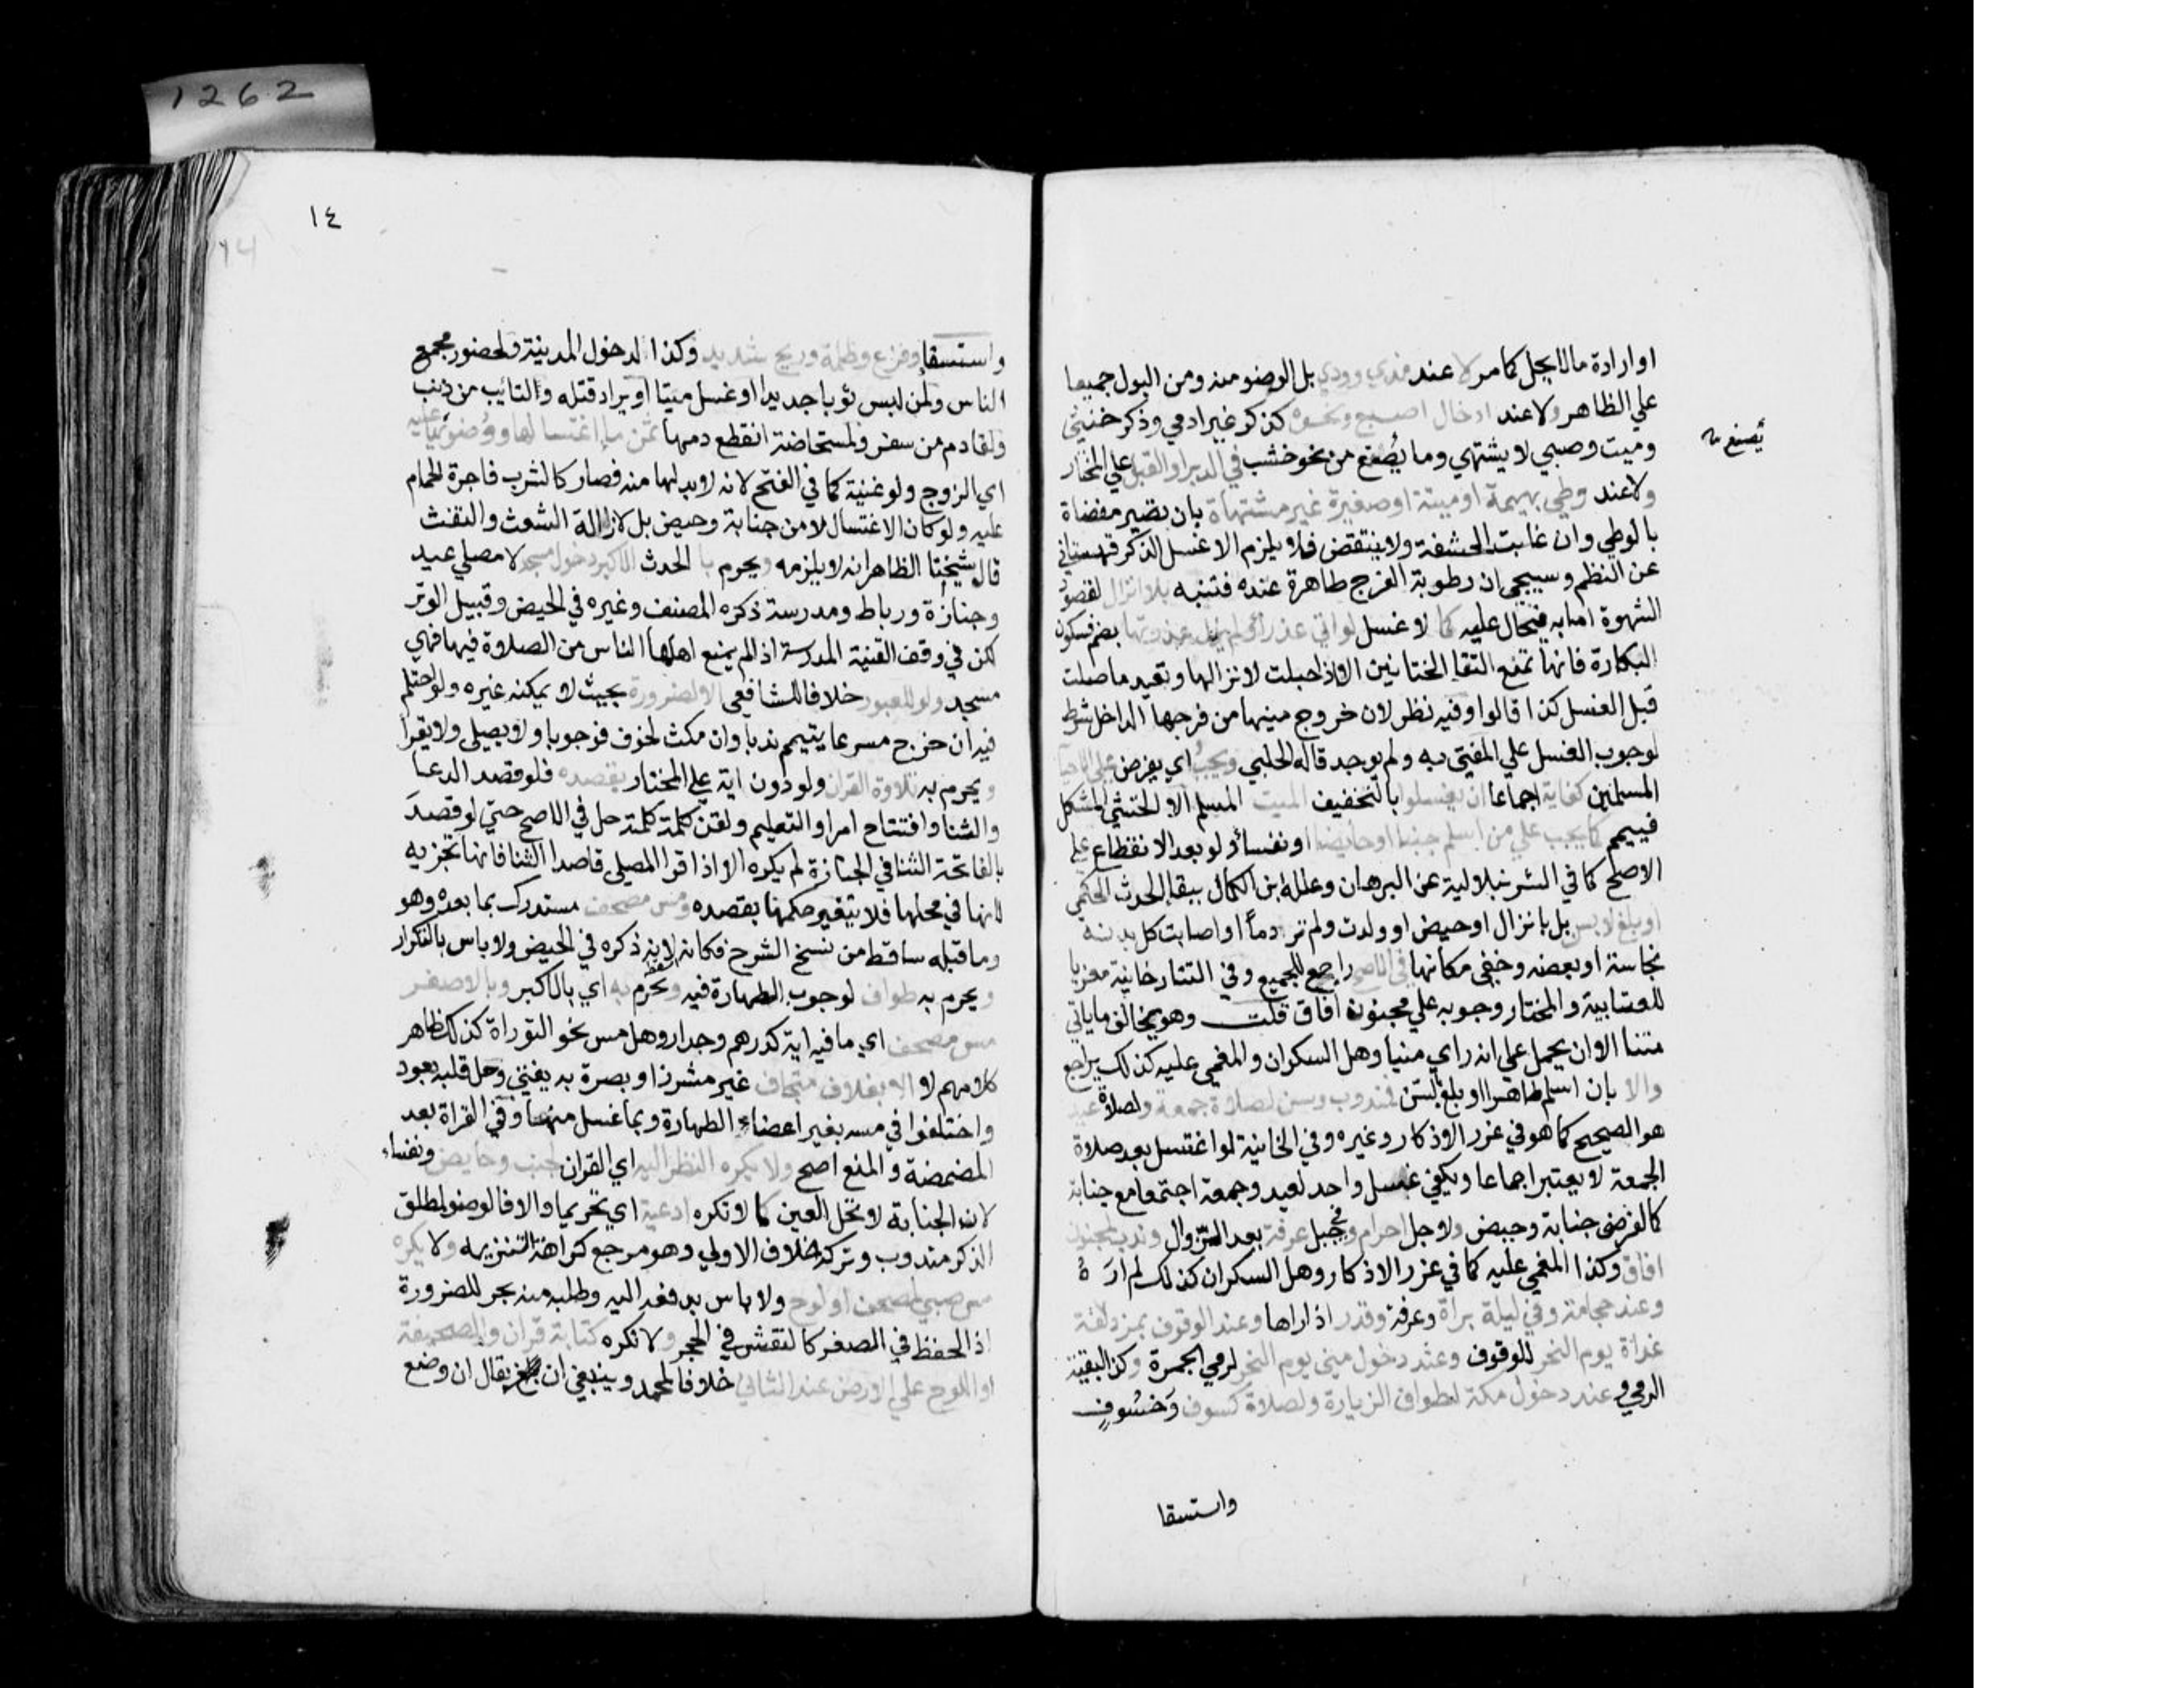 1262
او ارادة مالا يحل كما مر لا عند مذي وودي بل الوضو منه ومن البول جميعا
علي الظاهر ولا عند ادخال اصبع ونحوه كذكر غير ادمي وذكر خنثي
وميت وصبي لا يشتهي وما يُصْنع من نحو خشب في الدبر او القبل علي المختار
يُصنع
ولا عند وطي بهيمة او ميتة او صغيرة غير مشتهاة بان تصير مفضاة
بالوطي وان غابت الحشفة ولا ينتقض فلا يلزم الا غسل الذكر قهستاني
عن النظم وسيجي ان رطوبة الفرج طاهرة عنده فتنبه بلا انزال لقصور
الشهوة اما به فيحال عليه كما لا غسل لو اتي عذراء ولم يزل عذرتها بضم فسكون
البكارة فانها تمنع التقا الختانين الا اذا حبلت لانزالها وتعيد ما صلت
قبل الغسل كذا قالوا وفيه نظر لان خروج منيها من فرجها الداخل شرط
لوجوب الغسل علي المفتي به ولم يوجد قاله الحلبي ويجب اي يفرض علي الاحيا
المسلمين كفاية اجماعا ان يغسلوا بالتخفيف الميت المسلم الا الخنثي المشكل
فييمم كما يجب علي من اسلم جنبا او حايضا او نفسا ولو بعد الانقطاع علي
الاصح كما في الشرنبلالية عن البرهان وعلله ابن الكمال ببقا الحدث الحكمي
او بلغ لا بسن بل بانزال او حيض او ولدت ولم تر دماً او اصابت كل بدنه
نجاسة او بعضه وخفي مكانها في الاصح راجع للجميع وفي التتارخانية معزيا
للعتابية والمختار وجوبه علي مجنون افاق قلت وهو يخالف ما ياتي
متنا الا ان يحمل علي انه راي منيا وهل السكران والمغمي عليه كذلك يراجع
والا بان اسلم طاهرا او بلغ بالسن فمندوب وسن لصلاة جمعة ولصلاة عيد
هو الصحيح كما هو في غرر الاذكار وغيره وفي الخانية لو اغتسل بعد صلاة
الجمعة لا يعتبر اجماعا ويكفي غسل واحد لعيد وجمعة اجتمعا مع جنابة
كالفرضي جنابة وحيض ولاجل احرام وفي جبل عرفة بعد الزوال وندب لمجنون
افاق وكذا المغمي عليه كما في غرر الاذكار وهل السكران كذلك لم ارَهُ
وعند حجامة وفي ليلة براة وعرفة وقدر اذا راها وعند الوقوف بمزدلفة
غداة يوم النحر للوقوف وعند دخول مني يوم النحر لرمي الجمرة وكذا لبقية
الرمي وعند دخول مكة لطواف الزيارة ولصلاة كسوف وَخسُوفٍ
واستسقا
١٤
14
واستسقا وفزع وظلمة وريح شديد وكذا لدخول المدينة ولحضور مجمع
الناس ولمن لبس ثوبا جديدا او غسل ميتا او يراد قتله والتايب من ذنب
ولقادم من سفر ولمستحاضة انقطع دمها ثمن ما اغتسالها ووضوئها عليه
اي الزوج ولو غنية كما في الفتح لانه لا بد لها منه فصار كالشرب فاجرة الحمام
عليه ولو كان الاغتسال لا من جنابة وحيض بل لازالة الشعث والتفث
قال شيخنا الظاهر انه لا يلزمه ويحرم با لحدث الاكبر دخول مسجد لا مصلي عيد
وجنازة ورباط ومدرسة ذكره المصنف وغيره في الحيض وقبيل الوتر
لكن في وقف القنية المدرسة اذا لم يمنع اهلها الناس من الصلاة فيها فهي
مسجد ولو للعبور خلافا للشافعي الا لضرورة بحيث لا يمكنه غيره ولو احتلم
فيه ان خرج مسرعا يتيمم ندبا وان مكث لخوف فوجوبا ولا يصلي ولا يقرا
ويحرم به تلاوة القران ولو دون اية علي المختار بقصده فلو قصد الدعا
والثنا وافتتاح امر او التعليم ولقن كلمة كلمة حل في الاصح حتي لو قصدَ
بالفاتحة الثنا في الجنازة لم يكره الا اذا قرا المصلي قاصدا الثنا فانها تجزيه
لانها في محلها فلا يتغير حكمها بقصده ومس مصحف مستدرك بما بعده وهو
وما قبله ساقط من نسخ الشرح فكانه لانه ذكره في الحيض ولا باس بالتكرار
ويحرم به طواف لوجوب الطهارة فيه ويحرم به اي بالاكبر وبالاصغر
مس مصحف اي ما فيه اية كدرهم وجدار وهل مس نحو التوراة كذلك ظاهر
كلامهم لا الا بغلاف متجاف غير مشرز او بصرة به يفتي وحل قلبه بعود
واختلفوا في مسه بغير اعضاء الطهارة وبما غسل منها وفي القراة بعد
المضمضة والمنع اصح ولا يكره النظر اليه اي القران لجنب وحايض ونفساء
لان الجنابة لا تحل العين كما لا تكره ادعية اي تحريما والا فالوضو لمطلق
الذكر مندوب وتركه خلاف الاولي وهو مرجع كراهة التنزيه ولا يكره
مس صبي لمصحف او لوح ولا باس بدفعه اليه وطلبه منه بحر للضرورة
اذ الحفظ في الصغر كالنقش في الحجر ولا تكره كتابة قران والصحيفة
او اللوح علي الارض عند الثاني خلافا لمحمد وينبغي ان يقال ان وضع